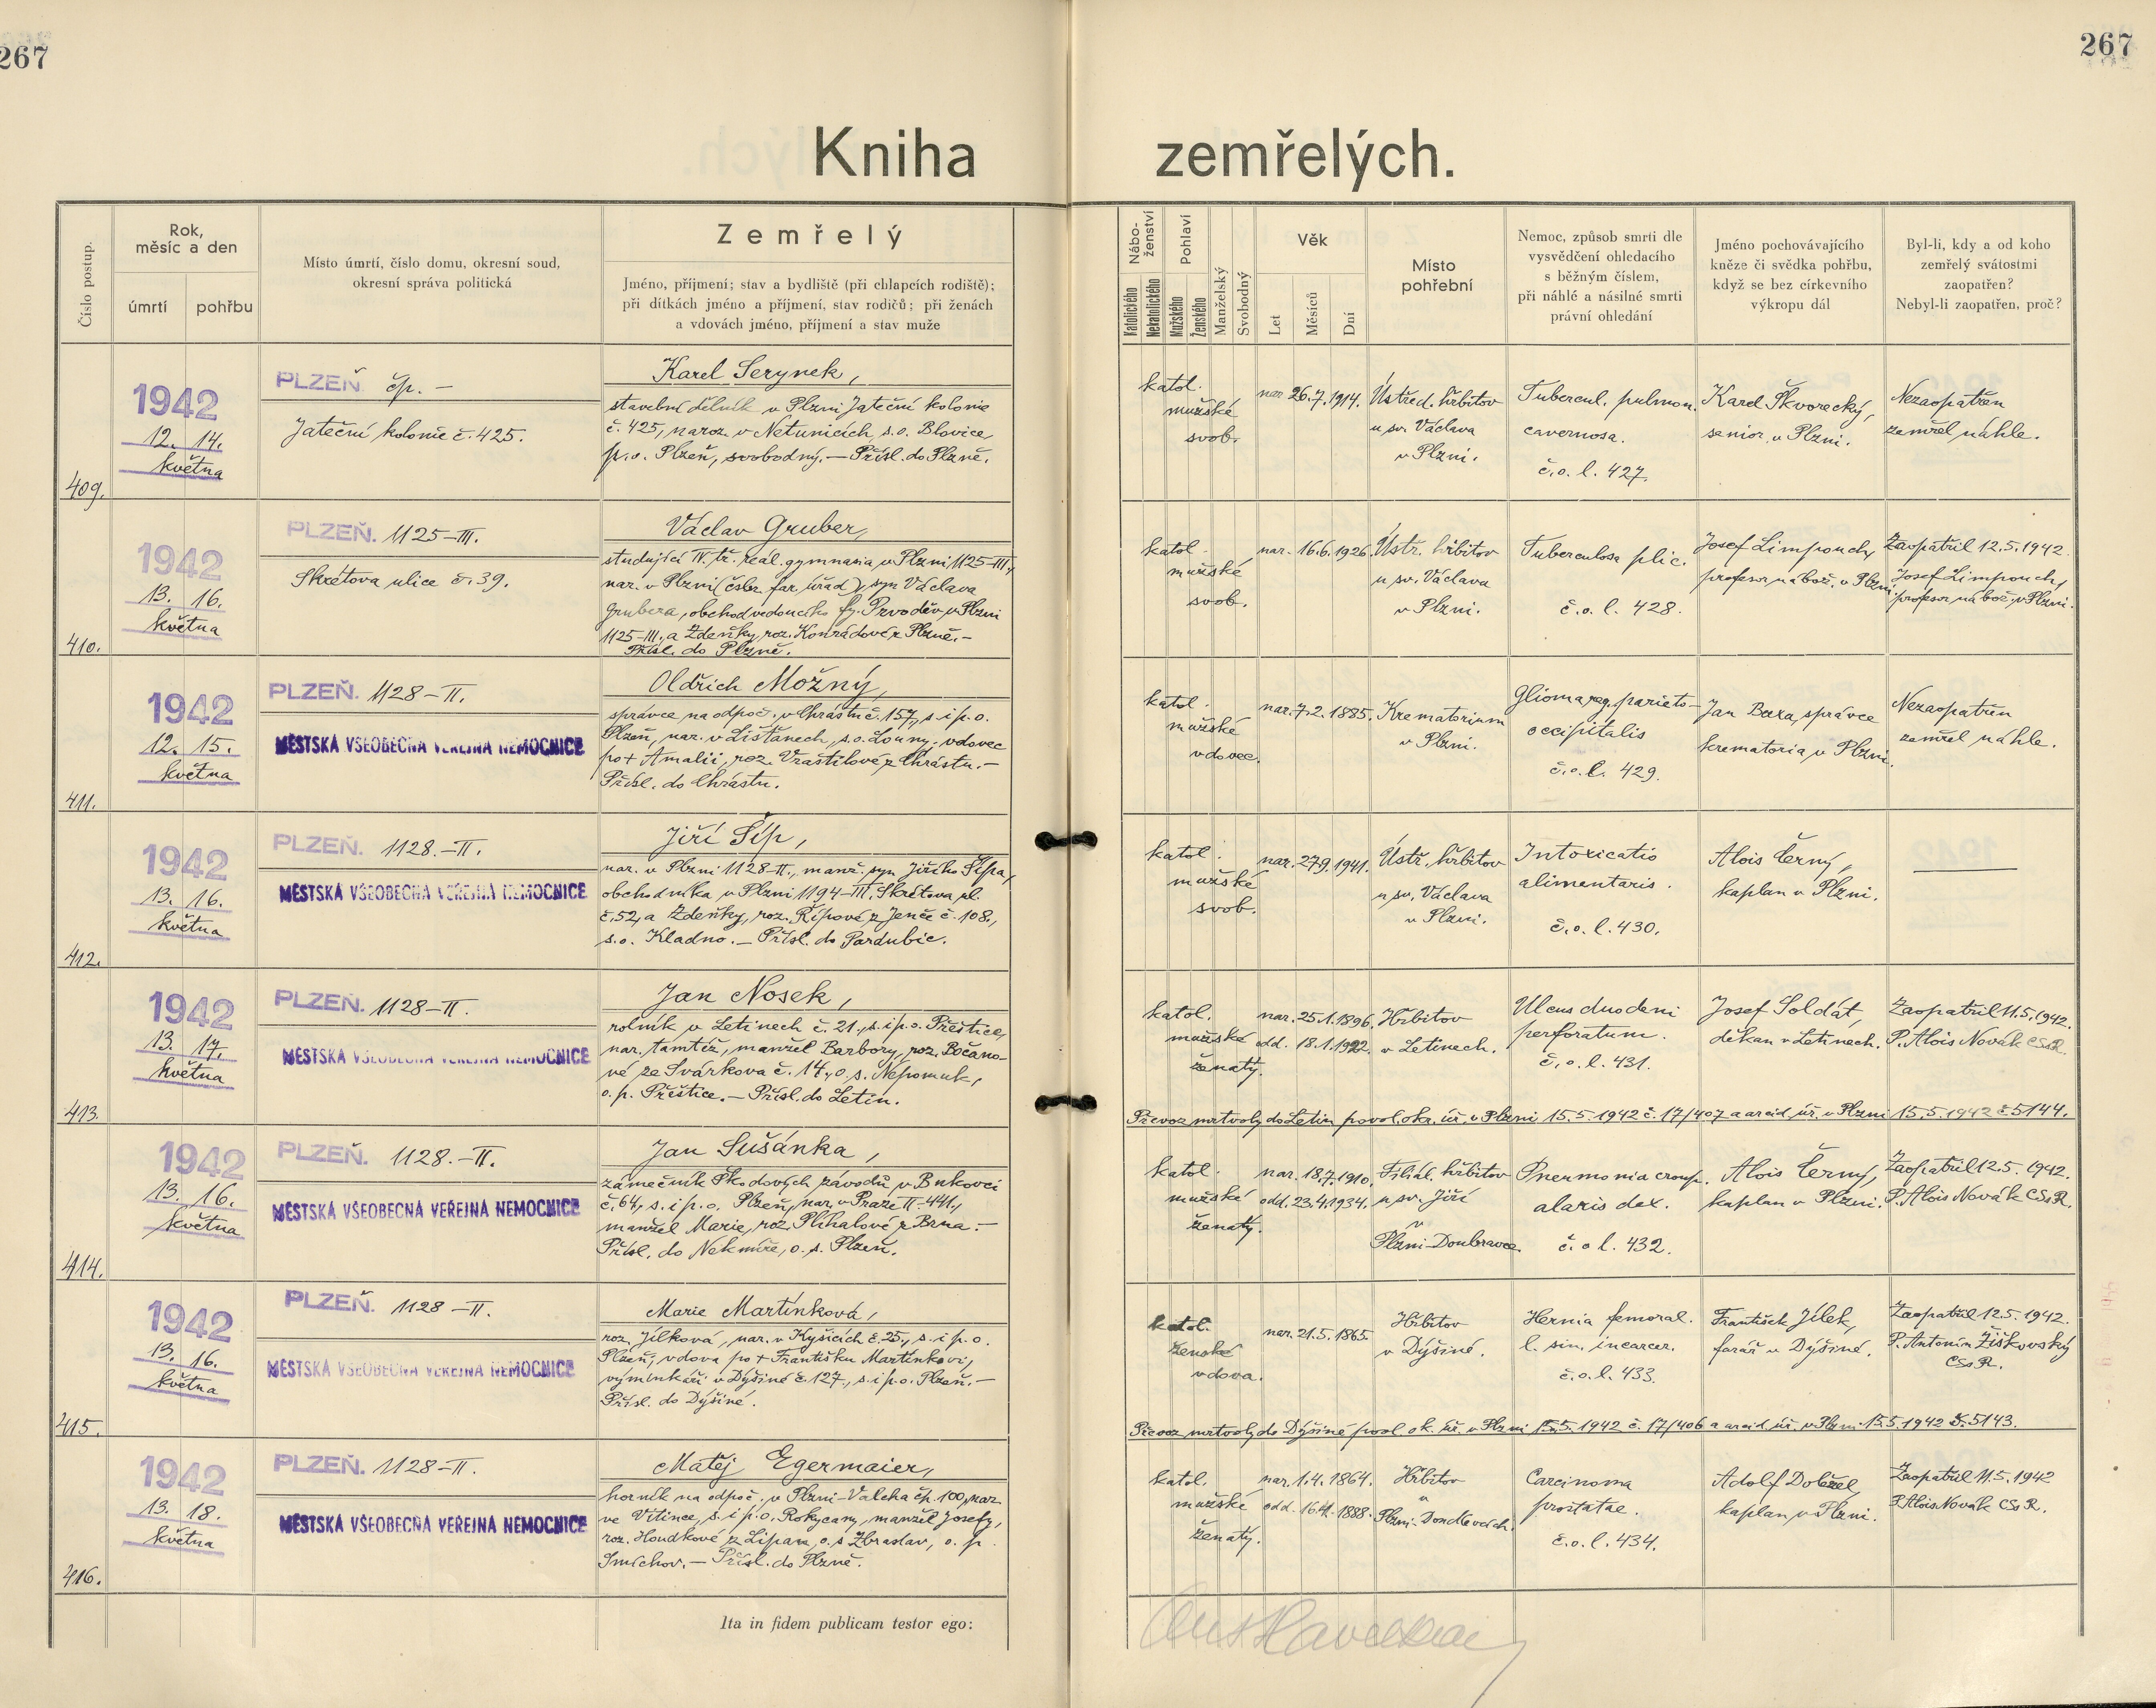 267
267
Kniha zemřelých.
Číslo postup.
Rok,
měsíc a den
úmrtí
pohřbu
Místo úmrtí, číslo domu, okresní soud,
okresní správa politická
Zemřelý
Jméno, příjmení; stav a bydliště (při chlapcích rodiště);
při dítkách jméno a příjmení, stav rodičů; při ženách
a vdovách jméno, příjmení a stav muže
Nábo-
ženství
Katolického
Nekatolického
Pohlaví
Mužského
Ženského
Manželský
Svobodný
Věk
Let
Měsíců
Dní
Místo
pohřební
Nemoc, způsob smrti dle
vysvědčení ohledacího
s běžným číslem,
při náhlé a násilné smrti
právní ohledání
Jméno pochovávajícího
kněze či svědka pohřbu,
když se bez církevního
výkropu dál
Byl-li, kdy a od koho
zemřelý svátostmi
zaopatřen?
Nebyl-li zaopatřen, proč?
409.
1942
12. 14.
května
PLZEŇ čp. —
Jateční kolonie č. 425.
Karel Serynek,
stavební dělník v Plzni Jateční kolonie
č. 425, naroz. v Netunicích, s.o. Blovice,
p.o. Plzeň, svobodný. — Přísl. do Plzně.
katol.
mužské
svob.
nar. 26.7.1914.
Ústřed. hřbitov
u sv. Václava
v Plzni.
Tubercul. pulmon.
cavernosa.
č.o.l. 427.
Karel Škvorecký,
senior v Plzni.
Nezaopatřen
zemřel náhle.
410.
1942
13. 16.
května
PLZEŇ. 1125–III.
Skrétova ulice č. 39.
Václav Gruber,
studující IV. tř. reál. gymnasia v Plzni 1125–III.,
nar. v Plzni (čsbr. far. úřad), syn Václava
Grubera, obchodvedoucího fy. Prvoděv v Plzni
1125–III., a Zdeňky, roz. Konrádové z Plzně. –
Přísl. do Plzně.
katol.
mužské
svob.
nar. 16.6.1926.
Ústř. hřbitov
u sv. Václava
v Plzni.
Tuberculosa plic.
č.o.l. 428.
Josef Limpouch,
profesor nábož. v Plzni.
Zaopatřil 12.5.1942.
Josef Limpouch,
profesor nábož. v Plzni.
411.
1942
12. 15.
května
PLZEŇ. 1128–II.
MĚSTSKÁ VŠEOBECNÁ VEŘEJNÁ NEMOCNICE
Oldřich Možný,
správce na odpoč. v Chrástu č. 157, s. i p. o.
Plzeň, nar. v Lišťanech, s.o. Louny, vdovec
po + Amalii, roz. Vraštilové z Chrástu. –
Přísl. do Chrástu.
katol.
mužské
vdovec.
nar. 7.2.1885.
Krematorium
v Plzni.
Glioma reg. parieto-
occipitalis
č.o.l. 429.
Jan Baxa, správce
krematoria v Plzni.
Nezaopatřen
zemřel náhle.
412.
1942
13. 16.
května
PLZEŇ. 1128.–II.
MĚSTSKÁ VŠEOBECNÁ VEŘEJNÁ NEMOCNICE
Jiří Šíp,
nar. v Plzni 1128–II., manž. syn Jiřího Šípa,
obchodníka v Plzni 1194–III. Skrétova ul.
č. 52, a Zdeňky, roz. Řípové z Jenče č. 108.,
s.o. Kladno. — Přísl. do Pardubic.
katol.
mužské
svob.
nar. 27.9.1941.
Ústř. hřbitov
u sv. Václava
v Plzni.
Intoxicatio
alimentaris.
č.o.l. 430.
Alois Černý,
kaplan v Plzni.
—
413.
1942
13. 17.
května
PLZEŇ. 1128–II.
MĚSTSKÁ VŠEOBECNÁ VEŘEJNÁ NEMOCNICE
Jan Nosek,
rolník v Letinech č. 21., s. i p. o. Přeštice,
nar. tamtéž, manžel Barbory, roz. Bočano-
vé ze Svárkova č. 14., o.s. Nepomuk,
o. p. Přeštice. — Přísl. do Letin.
katol.
mužské
ženatý.
nar. 25.1.1896.
odd. 18.1.1922.
Hřbitov
v Letinech.
Ulcus duodeni
perforatum.
č.o.l. 431.
Josef Soldát,
děkan v Letinech.
Zaopatřil 11.5.1942.
P. Alois Novák CSsR.
Převoz mrtvoly do Letin povol. okr. úř. v Plzni 15.5.1942 č. 17/407 a arcid. úř. v Plzni 15.5.1942 č. 5144.
414.
1942
13. 16.
května
PLZEŇ. 1128.–II.
MĚSTSKÁ VŠEOBECNÁ VEŘEJNÁ NEMOCNICE
Jan Sušánka,
zámečník Škodových závodů v Bukovci
č. 64, s. i p. o. Plzeň, nar. v Praze II–441.,
manžel Marie, roz. Plíhalové z Brna. –
Přísl. do Nekmíře, o. s. Plzeň.
katol.
mužské
ženatý.
nar. 18.7.1910.
odd. 23.4.1934.
Filiál. hřbitov
u sv. Jiří
v
Plzni-Doubravce.
Pneumonia croup.
alaris dex.
č.o.l. 432.
Alois Černý,
kaplan v Plzni.
Zaopatřil 12.5.1942.
P. Alois Novák CSsR.
415.
1942
13. 16.
května
PLZEŇ. 1128–II.
MĚSTSKÁ VŠEOBECNÁ VEŘEJNÁ NEMOCNICE
Marie Martínková,
roz. Jílková, nar. v Kyšicích č. 25., s. i p. o.
Plzeň, vdova po + Františku Martínkovi,
výminkáři v Dýšině č. 127., s. i p. o. Plzeň. –
Přísl. do Dýšiné.
katol.
ženské
vdova.
nar. 21.5.1865.
Hřbitov
v Dýšiné.
Hernia femoral.
l. sin. incarcer.
č.o.l. 433.
František Jílek,
farář v Dýšiné.
Zaopatřil 12.5.1942.
P. Antonín Žiškovský
CSsR.
Převoz mrtvoly do Dýšiné povol. ok. úř. v Plzni 15.5.1942 č. 17/406 a arcid. úř. v Plzni 15.5.1942 č. 5143.
416.
1942
13. 18.
května
PLZEŇ. 1128–II.
MĚSTSKÁ VŠEOBECNÁ VEŘEJNÁ NEMOCNICE
Matěj Egermaier,
horník na odpoč. v Plzni-Valcha čp. 100, nar.
ve Vitince, s. i p. o. Rokycany, manžel Josefy,
roz. Houdkové z Lipan, o. s. Zbraslav, o. p.
Smíchov. — Přísl. do Plzně.
katol.
mužské
ženatý.
nar. 1.4.1864.
odd. 1888.
Hřbitov
v
Plzni-Doudlevcích.
Carcinoma
prostatae.
č.o.l. 434.
Adolf
kaplan v Plzni.
Zaopatřil 11.5.1942
P. Alois Novák CSsR.
Ita in fidem publicam testor ego: